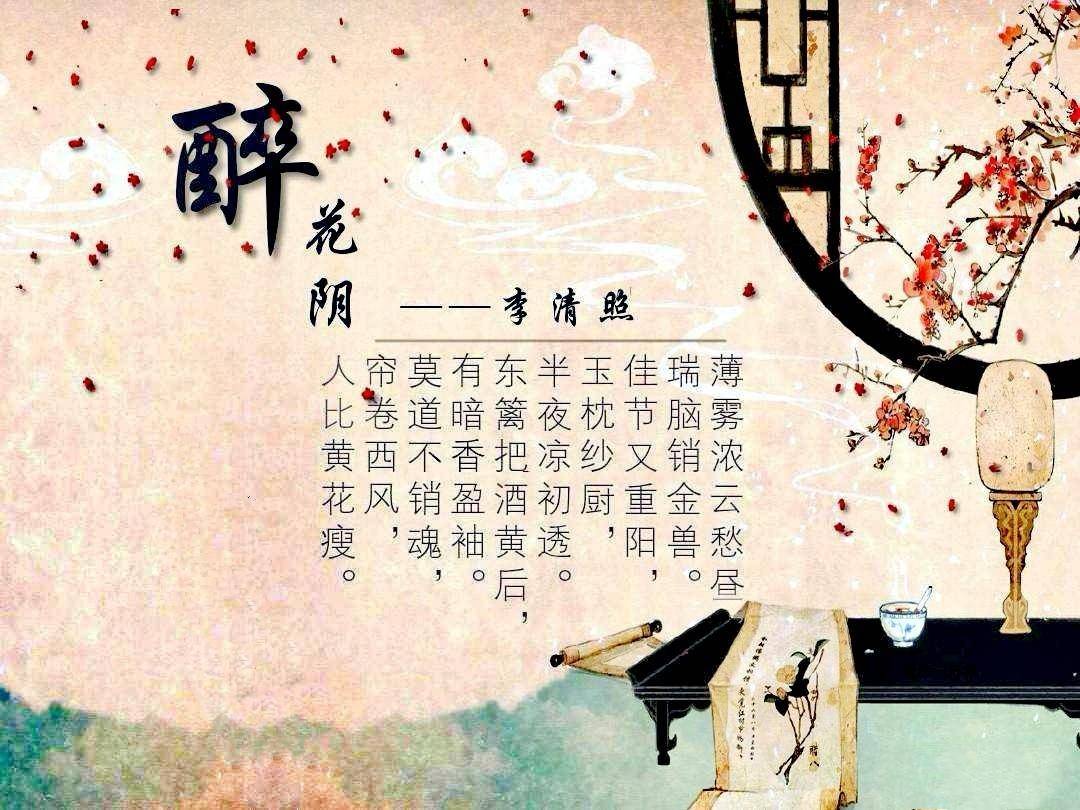 醉花阴
——李清照
薄雾浓云愁昼
瑞脑销金兽。
佳节又重阳，
玉枕纱厨，
半夜凉初透。
东篱把酒黄后，
有暗香盈袖。
莫道不销魂，
帘卷西风，
人比黄花瘦。
腊八